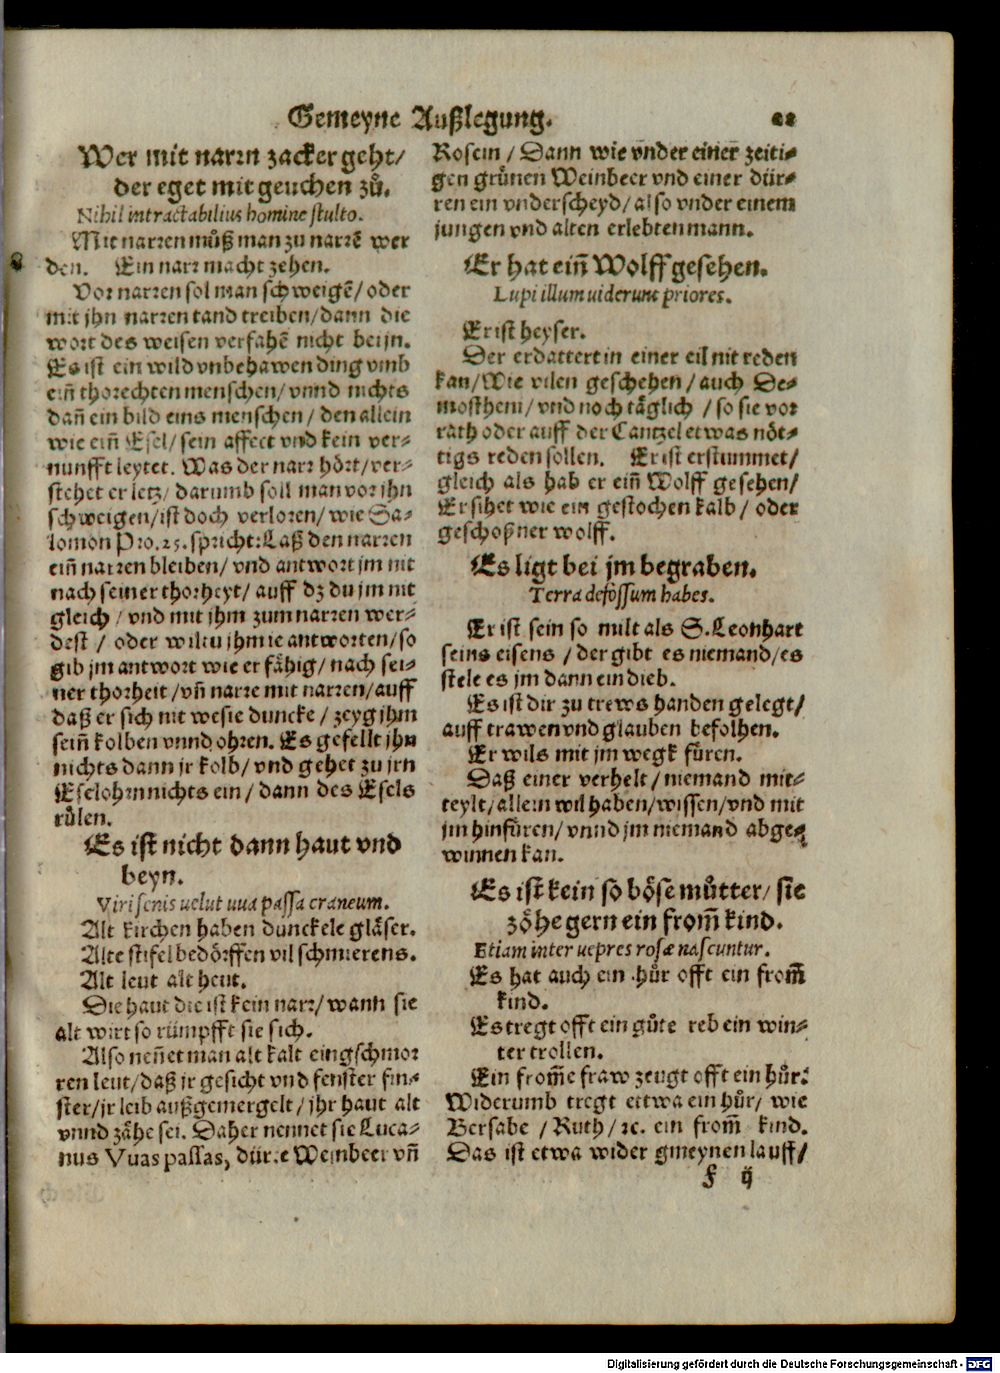 Gemeyne Außlegung. 22
Wer mit narrn zacker geht/
der eget mit geuchen zů.
Nihil intractabilius homine stulto.
Mit narren můß man zu narrẽ wer
den. Ein narr macht zehen.
Vor narren sol man schweigẽ/oder
mit jhn narren tand treiben/dann die
wort des weisen verfahẽ nicht bei jn.
Es ist ein wild vnbehawen ding vmb
ein̄ thorechten menschen/vnnd nichts
dan̄ ein bild eins menschen/den allein
wie ein̄ Esel/sein affect vnd kein ver-
nunfft leytet. Was der narr hört/ver-
stehet er letz/darumb soll man vor ihn
schweigen/ist doch verloren/wie Sa-
lomon Pro.25.spricht:Laß den narren
ein̄ narren bleiben/vnd antwort jm nit
nach seiner thorheyt/auff dz du jm nit
gleich/vnd mit jhm zum narren wer-
dest/oder wiltu jhm ie antworten/so
gib jm antwort wie er fähig/nach sei-
ner thorheit/vn̄ narre mit narren/auff
daß er sich nit wesie duncke/zeyg jhm
sein̄ kolben vnnd ohren. Es gefellt jhn
nichts dann jr kolb/vnd gehet zu jrn
Eselohrn nichts ein/dann des Esels
rülen.
Es ist nicht dann haut vnd
beyn.
Viri senis uelut uua passa craneum.
Alt kirchen haben dunckele gläser.
Alte stifel bedörffen vil schmierens.
Alt leut alt heut.
Die haut die ist kein narr/wann sie
alt wirt so rümpfft sie sich.
Also nen̄et man alt kalt eingschmor
ren leut/daß jr gesicht vnd fenster fin-
ster/jr leib außgemergelt/jhr haut alt
vnnd zähe sei. Daher nennet sie Luca-
nus Vuas passas, dürre Weinbeer vn̄
Rosein/Dann wie vnder einer zeiti-
gen grůnen Weinbeer vnd einer dür-
ren ein vnderscheyd/also vnder einem
jungen vnd alten erlebten mann.
Er hat ein̄ Wolff gesehen.
Lupi illum uiderunt priores.
Er ist heyser.
Der erdattert in einer eil nit reden
kan/Wie vilen geschehen/auch De-
mostheni/vnd noch täglich/so sie vor
rath oder auff der Cantzel etwas nöt-
tigs reden sollen. Er ist erstummet/
gleich als hab er ein̄ Wolff gesehen/
Er sihet wie ein gestochen kalb/oder
geschoßner wolff.
Es ligt bei jm begraben.
Terra defossum habes.
Er ist sein so milt als S.Leonhart
seins eisens/der gibt es niemand/es
stele es jm dann ein dieb.
Es ist dir zu trews handen gelegt/
auff trawen vnd glauben befolhen.
Er wils mit jm wegk füren.
Daß einer verhelt/niemand mit-
teylt/allein wil haben/wissen/vnd mit
jm hinfüren/vnnd jm niemand abge-
winnen kan.
Es ist kein so böse můtter/sie
zöhe gern ein from̄ kind.
Etiam inter uepres rosæ nascuntur.
Es hat auch ein hůr offt ein from̄
kind.
Es tregt offt ein gůte reb ein win-
ter trollen.
Ein from̄e fraw zeugt offt ein hůr:
Widerumb tregt ettwa ein hůr/wie
Bersabe/Ruth/ꝛc. ein from̄ kind.
Das ist etwa wider gmeynen lauff/
f ij
Digitalisierung gefördert durch die Deutsche Forschungsgemeinschaft - DFG